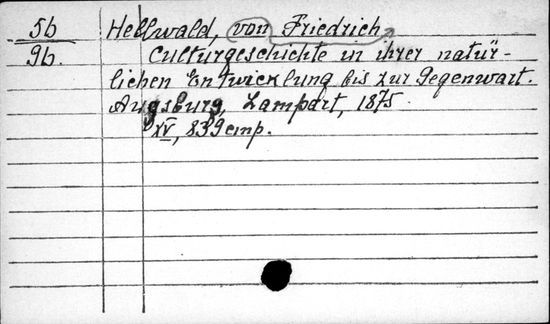 56 Hellwald, von Friedrich,
9b. Culturgeschichte in ihrer natür-
lichen Entwicklung bis zur Gegenwart.
Augsburg, Lampart, 1875.
XV, 839 стр.